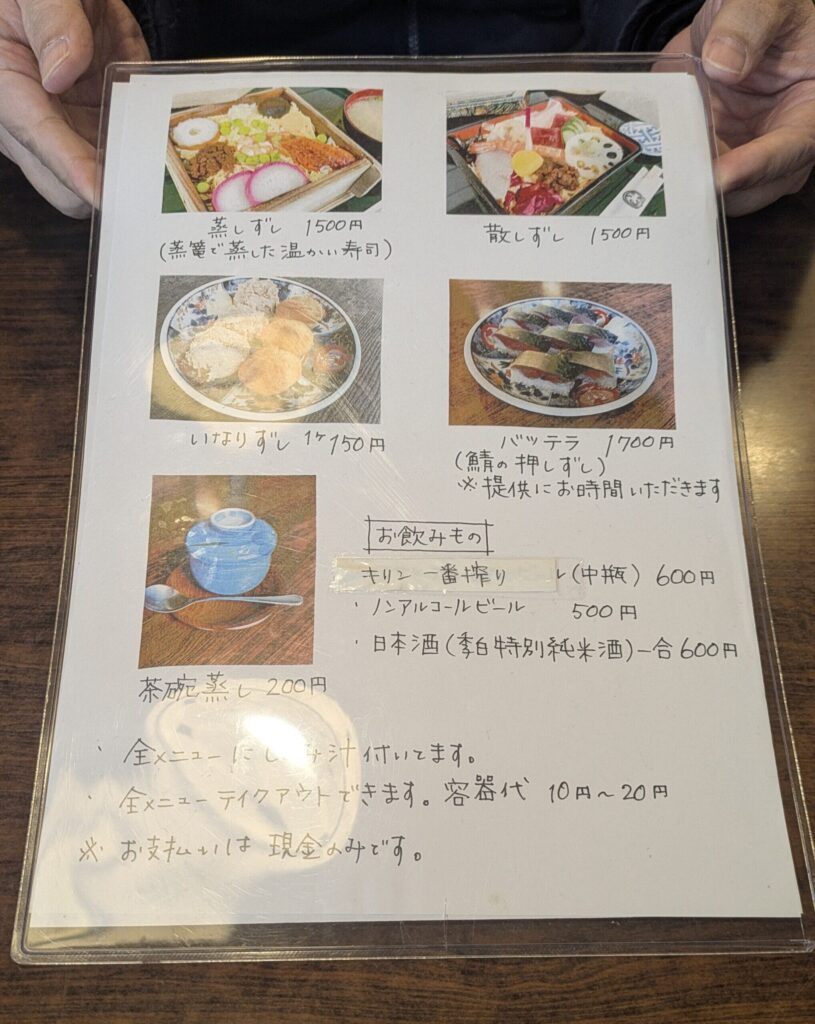 蒸しずし 1500円
(蒸篭で蒸した温かい寿司)
散しずし 1500円
いなりずし 1ケ150円
バッテラ 1700円
(鯖の押しずし)
※提供にお時間いただきます
茶碗蒸し 200円
お飲みもの
キリン 一番搾り ル(中瓶) 600円
・ノンアルコールビール 500円
・日本酒(李白特別純米酒)一合600円
・全メニューにし 汁付いてます。
・全メニューテイクアウトできます。容器代 10円～20円
※お支払いは現金のみです。